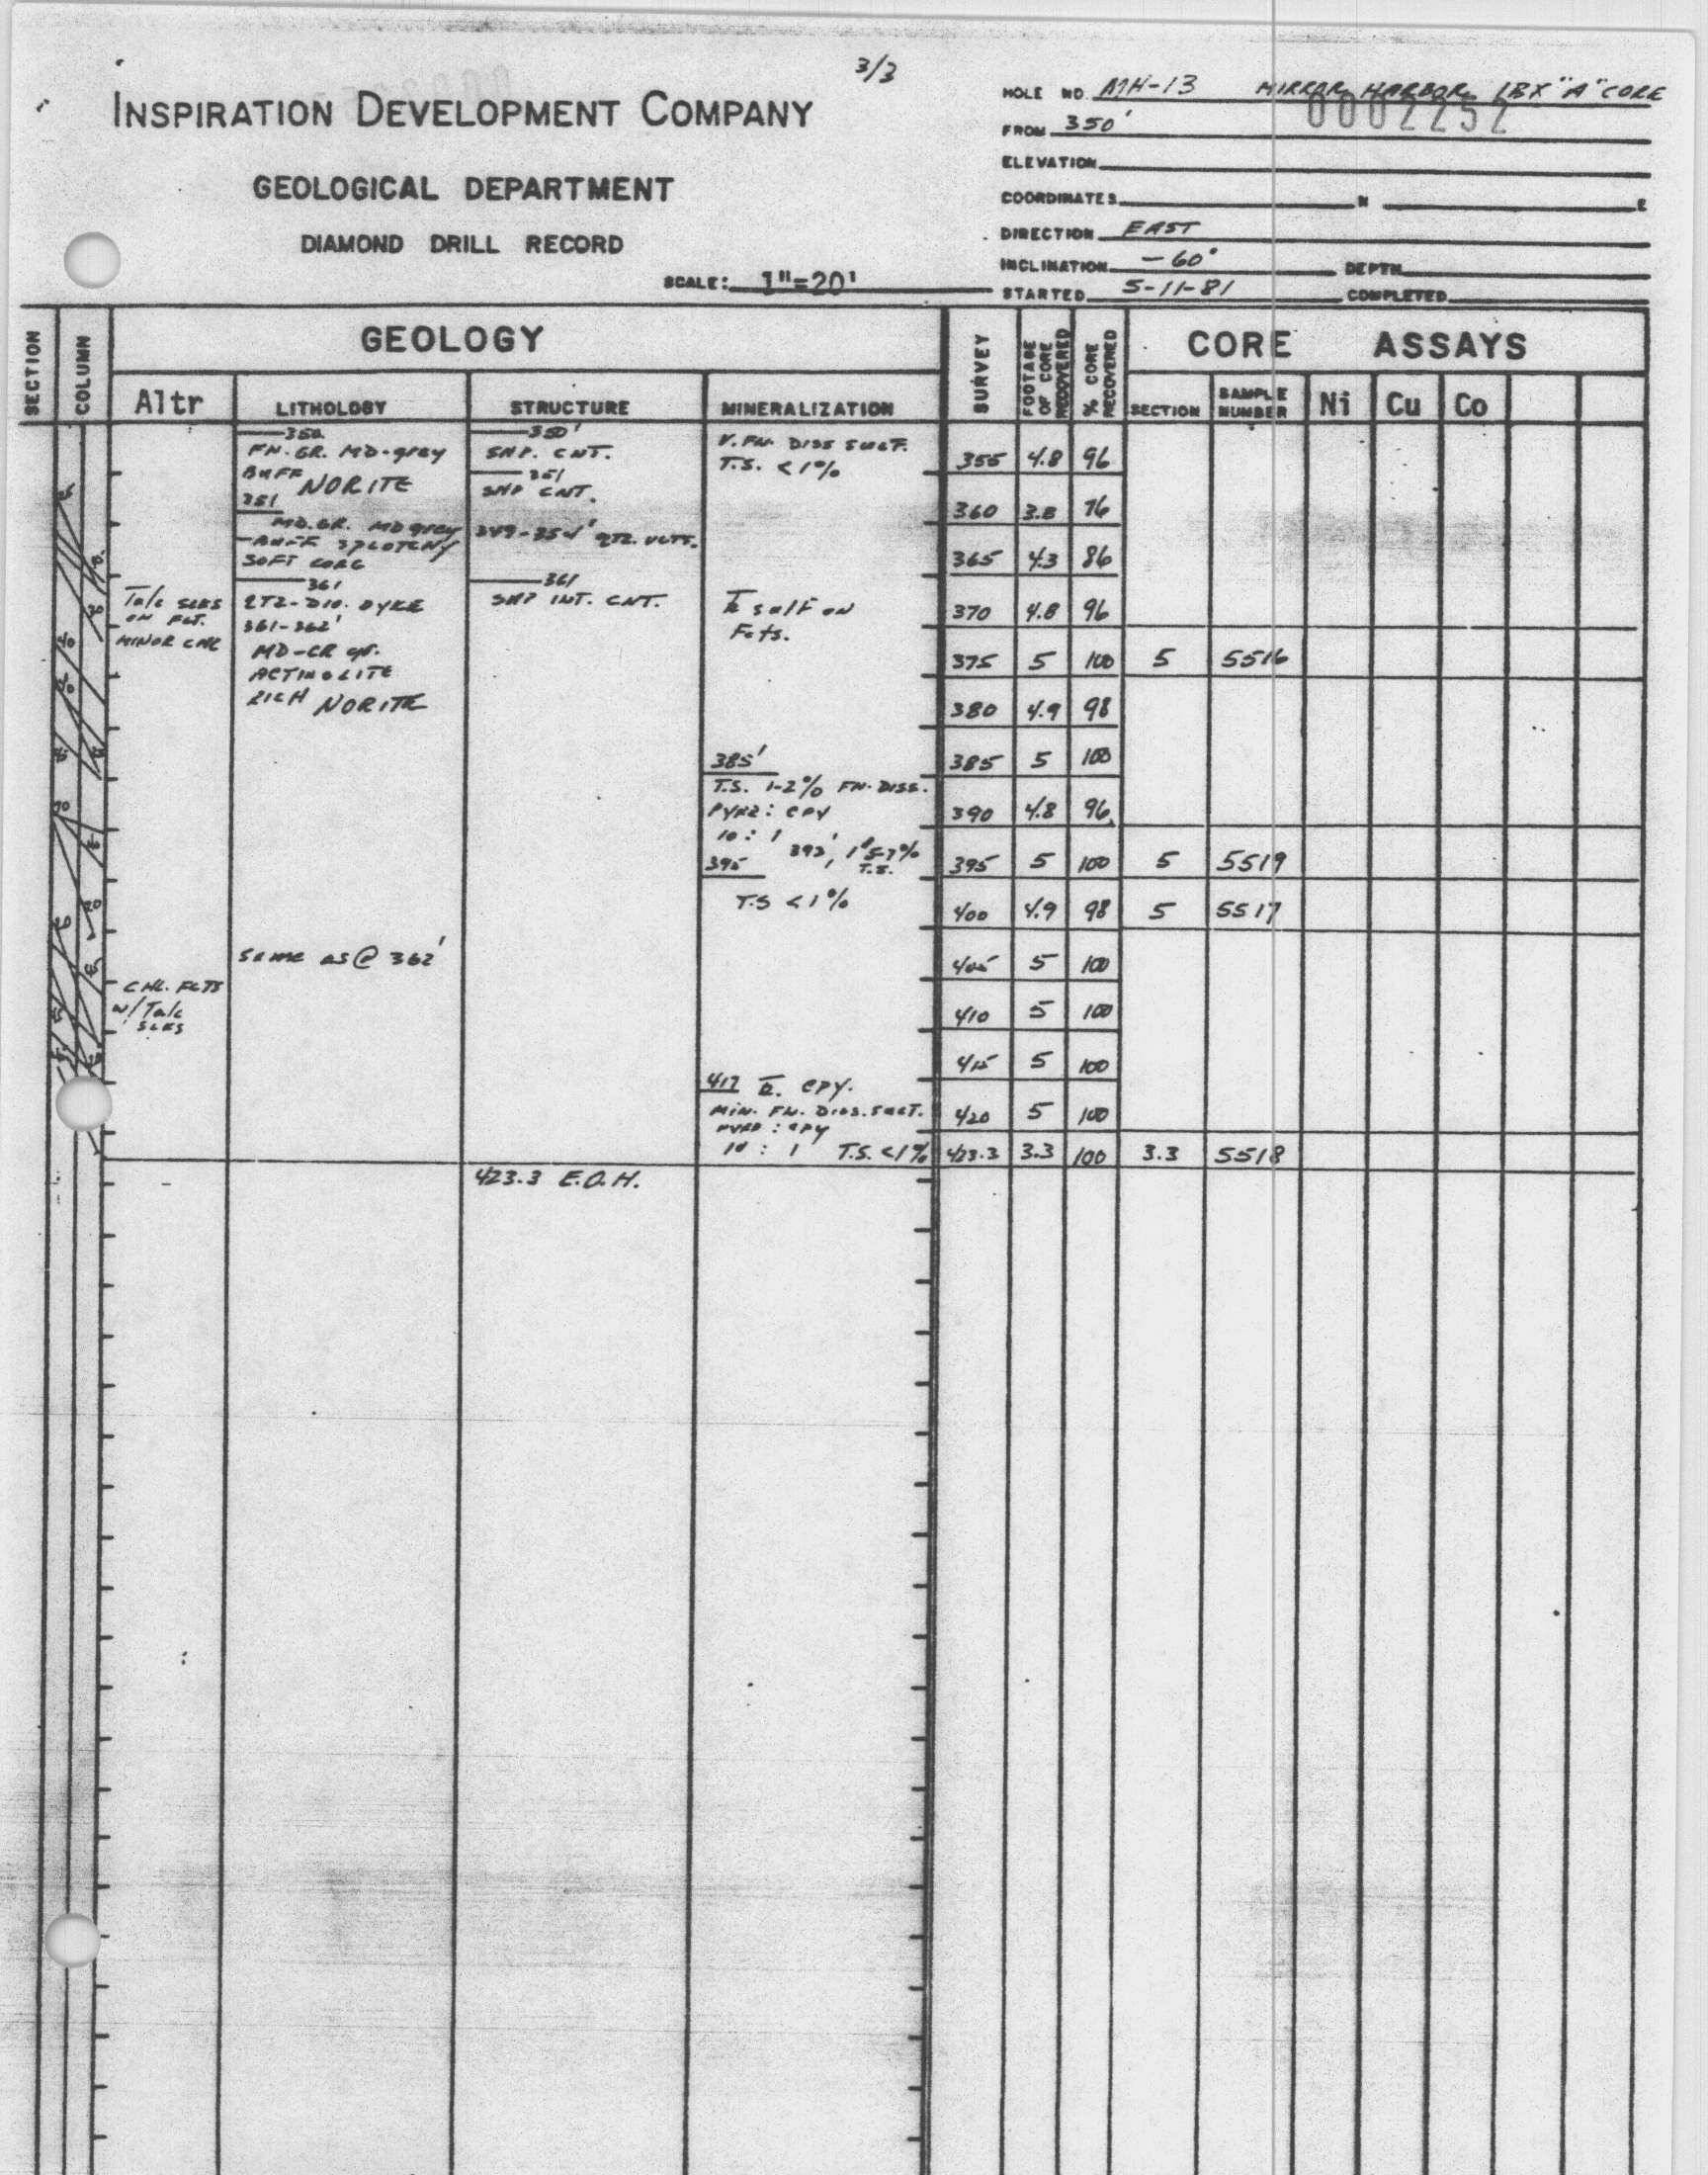 3/3
INSPIRATION DEVELOPMENT COMPANY
GEOLOGICAL DEPARTMENT
DIAMOND DRILL RECORD
SCALE: 1"=20'
HOLE NO. MH-13 MIRROR HARBOR IBX "A" CORE
0002252
FROM 350'
ELEVATION
COORDINATES N E
DIRECTION EAST
INCLINATION -60° DEPTH
STARTED 5-11-81 COMPLETED
SECTION
COLUMN
GEOLOGY
Altr
LITHOLOGY
STRUCTURE
MINERALIZATION
SURVEY
FOOTAGE OF CORE RECOVERED
% CORE RECOVERED
CORE ASSAYS
SECTION
SAMPLE NUMBER
Ni
Cu
Co
Talc SLKS
ON FLT.
MINOR CHL
CHL. FCTS
w/Talc
SLKS
350
FN. GR. MD-gray
BUFF NORITE
351
MD. GR. MD gray
BUFF SPLOTCHY
SOFT CORE
361
QTZ-DIO. DYKE
361-362'
MD-CR gr.
ACTINOLITE
RICH NORITE
same as @ 362'
350'
SHP. CNT.
351
SHP CNT.
349-354' QTZ. VLTS.
361
SHP INT. CNT.
423.3 E.O.H.
V. FN. DISS SULF.
T.S. <1%
sulf on
Fcts.
385'
T.S. 1-2% FN. DISS.
PYRR: CPY
10 : 1
393', 1" 5-7%
T.S.
395
T.S <1%
417 CPY.
MIN. FN. DISS. SULF.
PYRR : CPY
10 : 1 T.S. <1%
355 4.8 96
360 3.8 76
365 4.3 86
370 4.8 96
375 5 100 5 5516
380 4.9 98
385 5 100
390 4.8 96
395 5 100 5 5519
400 4.9 98 5 5517
405 5 100
410 5 100
415 5 100
420 5 100
423.3 3.3 100 3.3 5518